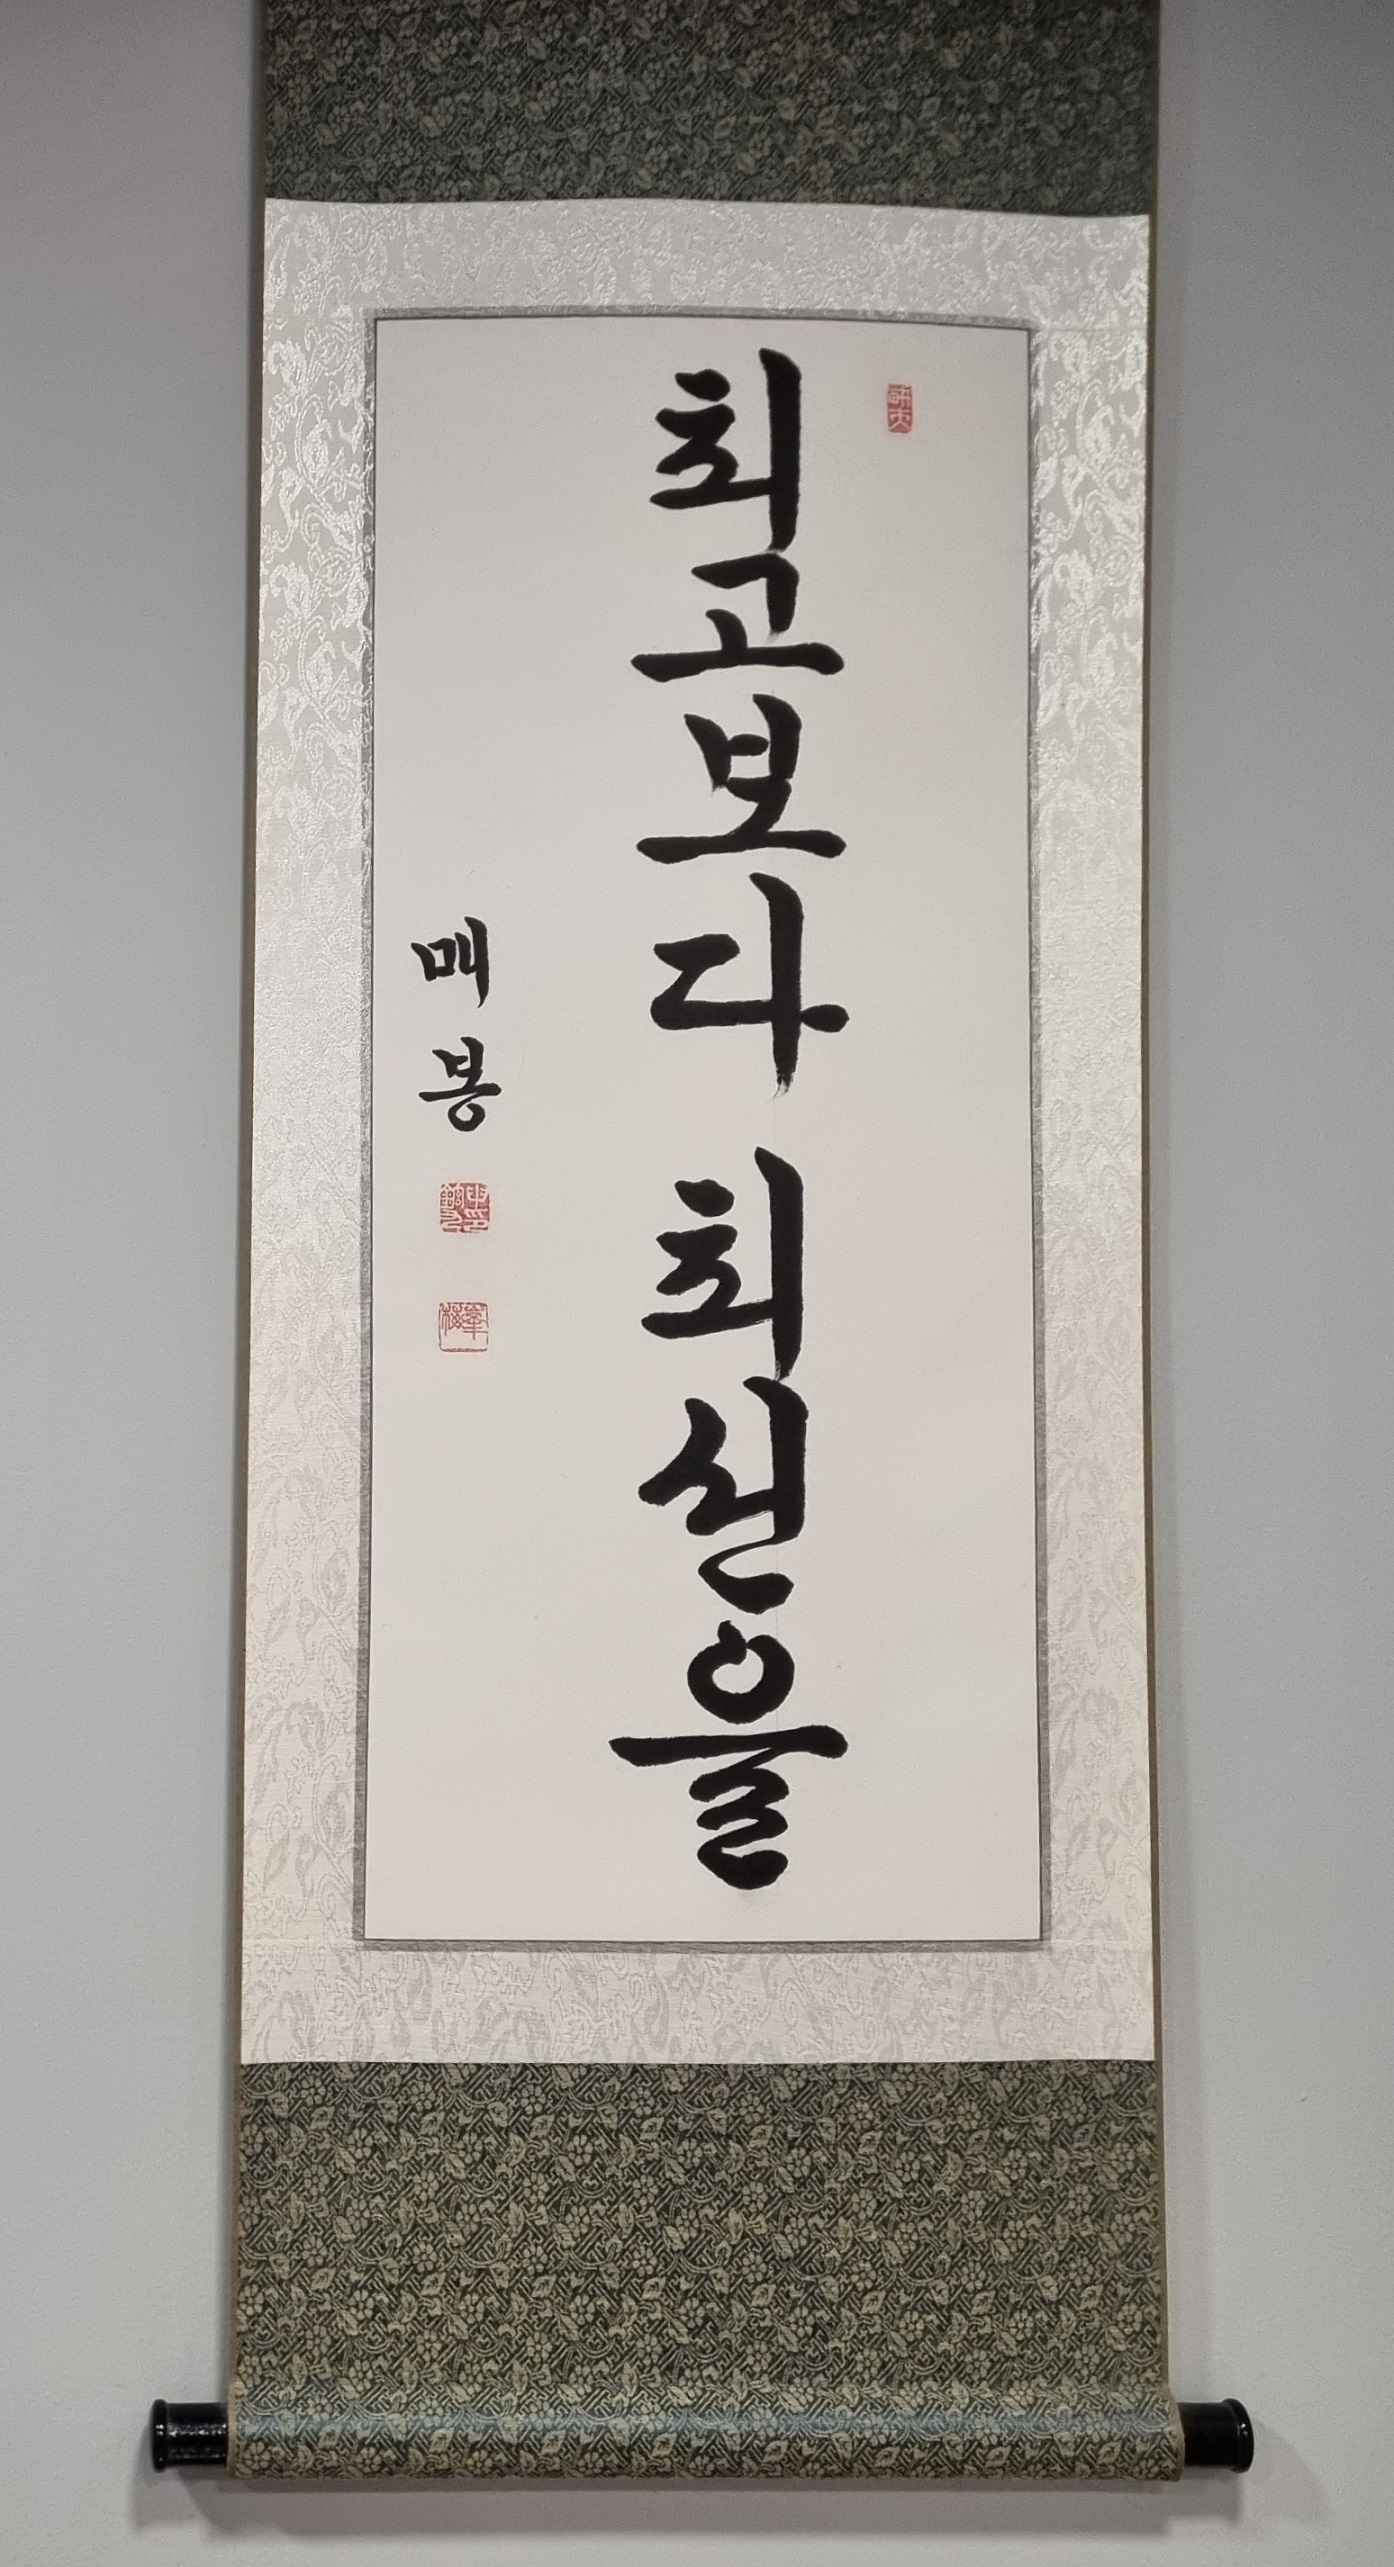 최고보다 최선을
매봉